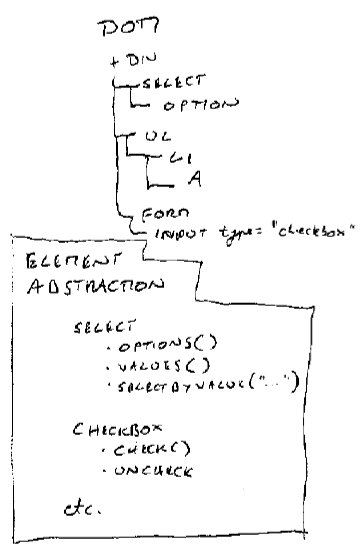 DOM
+ DIV
SELECT
OPTION
UL
LI
A
FORM
INPUT type="checkbox"
ELEMENT
ABSTRACTION
SELECT
· OPTIONS()
· VALUES()
· SELECTBYVALUE("...")
CHECKBOX
· CHECK()
· UNCHECK
etc.